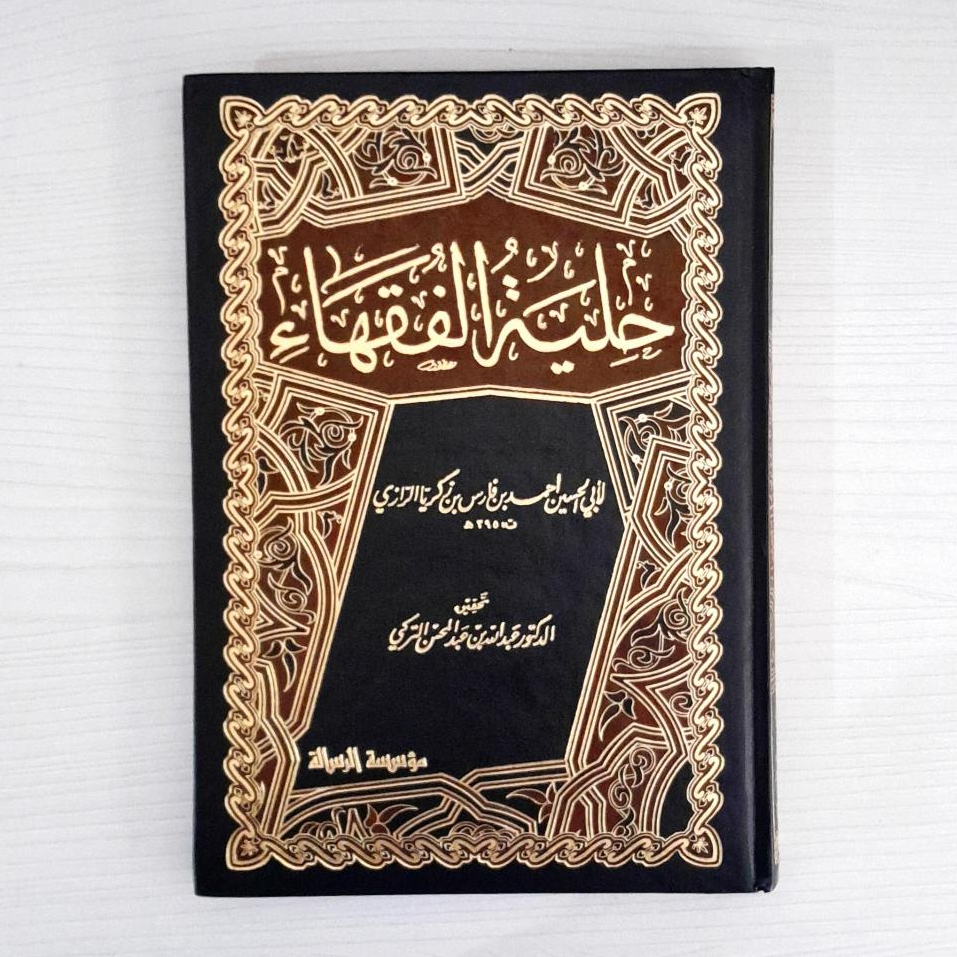 حِلْيَةُ الفُقَهَاءِ
لأبي الحسين أحمد بن فارس بن زكريا الرازي
ت: ٣٩٥ هـ
تحقيق
الدكتور عبد الله بن عبد المحسن التركي
مؤسسة الرسالة